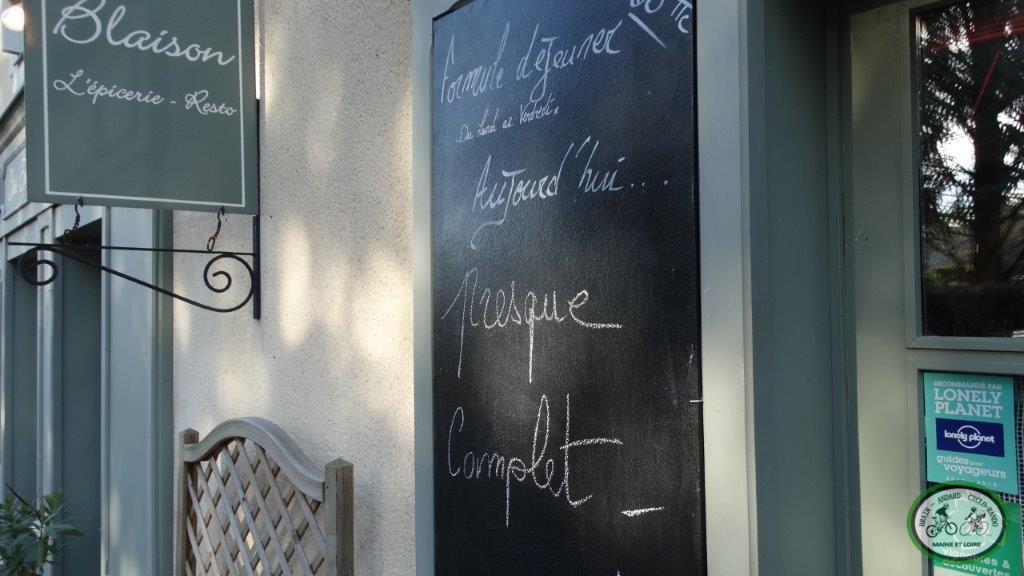 Blaison
L'épicerie - Resto
Formule déjeuner
Du Lundi au Vendredi.
Aujourd'hui....
Presque
Complet
RECOMMANDÉ PAR
LONELY
PLANET
lonely planet
guides pour
voyageurs
BRAIN ANDARD CYCLO-RANDO
MAINE ET LOIRE
découvertes